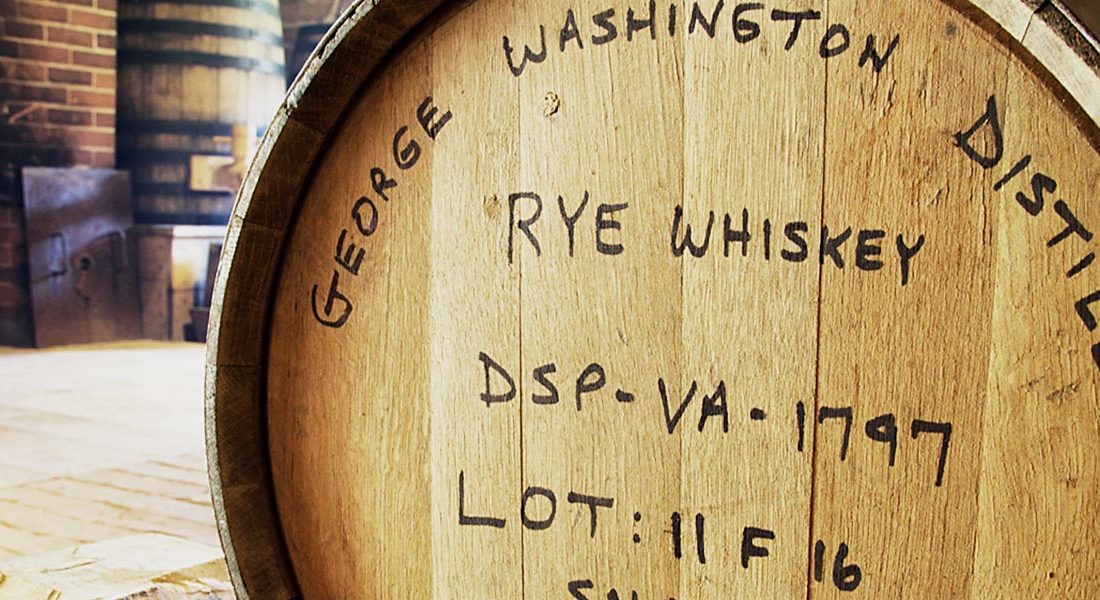 GEORGE WASHINGTON
RYE WHISKEY
DSP-VA-1797
LOT: 11 F 16